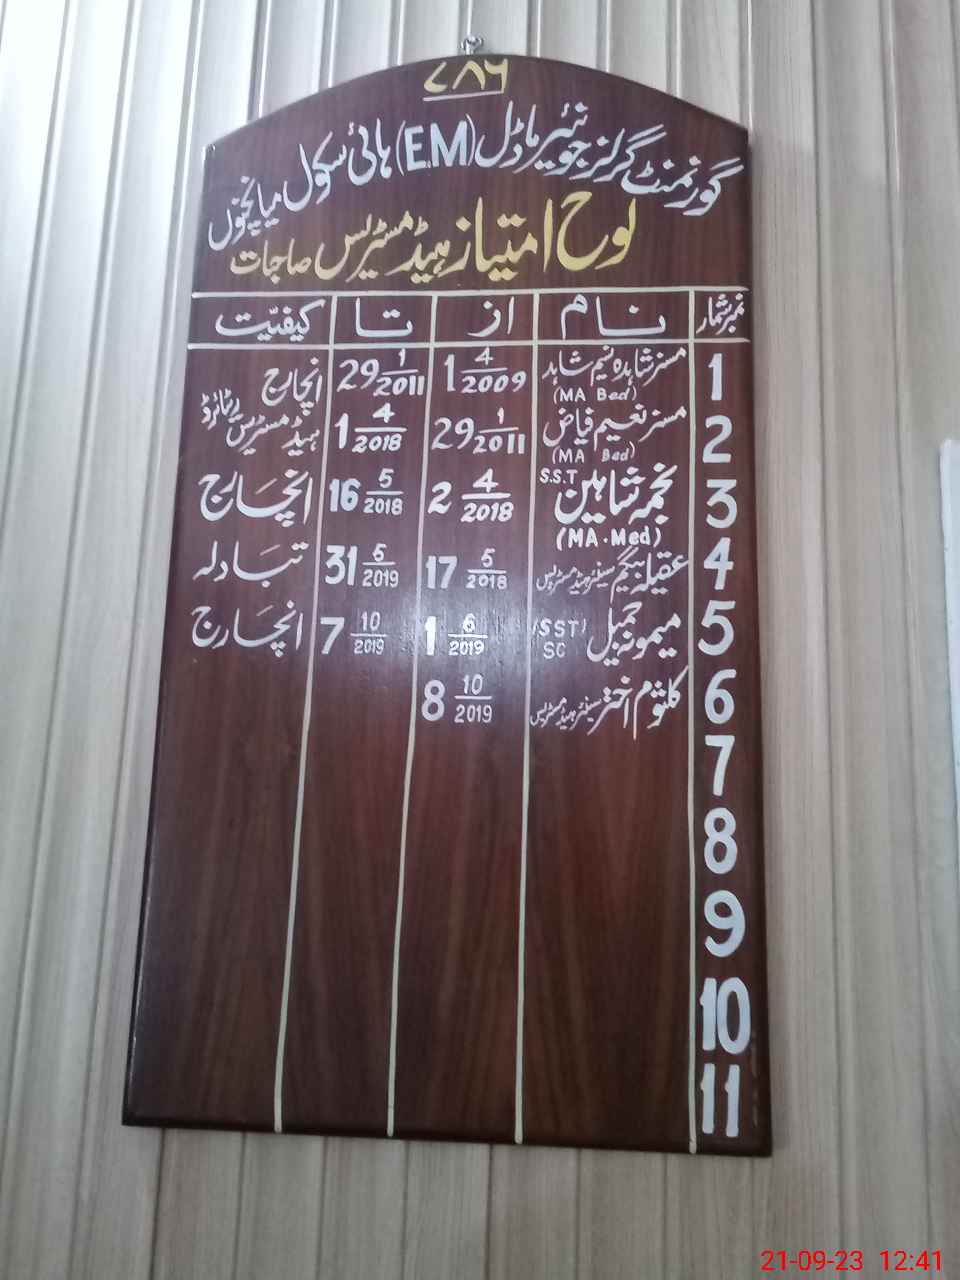 ۷۸۶
گورنمنٹ گرلز جونیئر ماڈل (E.M) ہائی سکول میانچنوں
لوح امتیاز ہیڈ مسٹریس صاحبات
نمبر شمار نام از تا کیفیّت
1 مسز شاہدہ نسیم شاہد (MA Bed) 1 4/2009 29 1/2011 انچارج
2 مسز نعیم فیاض (MA Bed) 29 1/2011 1 4/2018 ریٹائرڈ ہیڈ مسٹریس
3 نجمہ شاہین S.S.T (MA.Med) 2 4/2018 16 5/2018 انچارج
4 عقیلہ بیگم سینئر ہیڈ مسٹریس 17 5/2018 31 5/2019 تبادلہ
5 میمونہ جمیل (SST) SC 1 6/2019 7 10/2019 انچارج
6 کلثوم اختر سینئر ہیڈ مسٹریس 8 10/2019
7
8
9
10
11
21-09-23 12:41